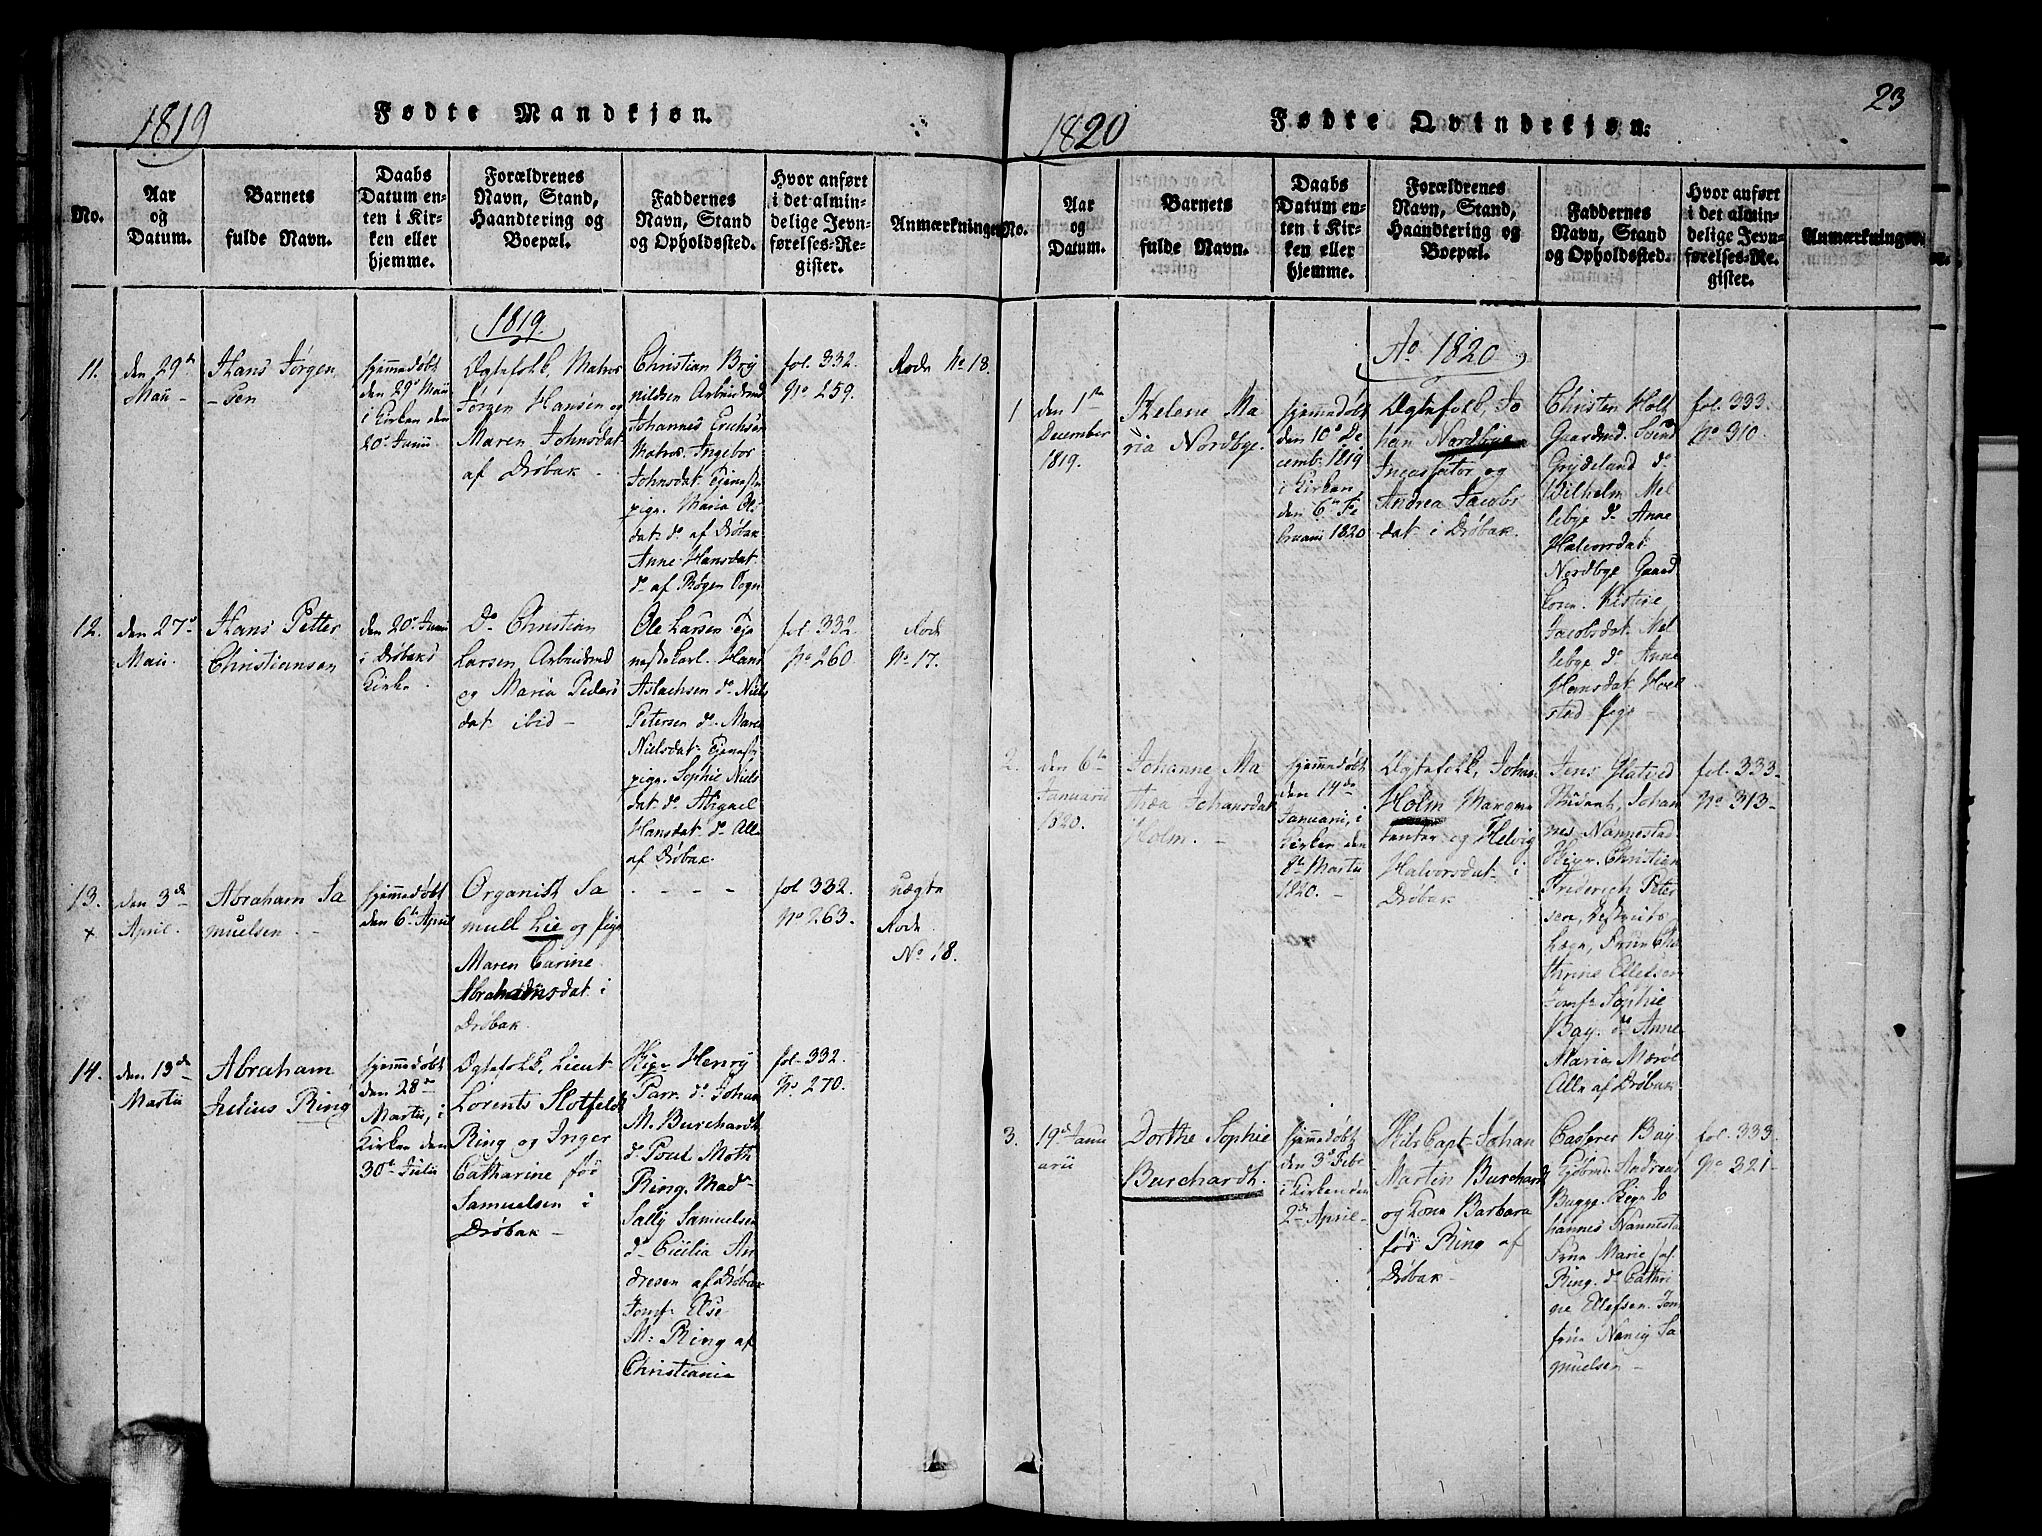 1819
Fødte Mandkjøn.
No.
Aar
og
Datum.
Barnets
fulde Navn.
Daabs
Datum en-
ten i Kir-
ken eller
hjemme.
Forældrenes
Navn, Stand,
Haandtering og
Boepæl.
Faddernes
Navn, Stand
og Opholdssted.
Hvor anført
i det almin-
delige Jevn-
førelses-Re-
gister.
Anmærkninger.
1819.
11.
den 29de
Maii -
Hans Jørgen
- sen
hjemmedøbt
den 29de Maii
i Kirken den
20de Junii
Ægtefolk, Matros
Jørgen Hansen og
Maren Johnsdat.
af Drøbak
Christian Bry
nildsen Arbeidsmd
Johannes Erichsen
Matros. Ingebor
Johnsdat. Tjeneste
pige. Maria Ols
dat. do af Drøbak
Anne Hansdat.
do af Røgen Sogn
fol. 332.
No 259.
Rode No 18.
12.
den 27de
Maii.
Hans Petter
Christiansen
den 20de Junii
i Drøbaks
Kirke.
Do Christian
Larsen, Arbeidsmd
og Maria Peders
dat ibid -
Ole Larsen Tje
nestekarl. Hans
Aslachsen do Niels
Petersen do Maren
Nielsdat. Tjeneste
pige. Sophie Niels
dat. do Abigael
Hansdat. do Alle
af Drøbak.
fol 332
No 260.
Rode
No 17.
13.
x
den 3de
April.
Abraham Sa
muelsen.
hjemmedøbt
den 6te April
Organist Sa
muel Lie og Pige
Maren Carine
Abrahamsdat. i
Drøbak.
- - - -
fol 332.
No 263.
uægte
Rode
No 18.
14.
den 13de
Martii
Abraham
Julius Ring
hjemmedøbt
den 28de
Martii, i
Kirken den
30te Julii
Ægtefolk, Lieut.
Lorents Slotfeldt
Ring og Inger
Catharine fød
Samuelsen i
Drøbak -
Higr Henry
Parr. do Johan
M. Burchardt
do Poul Moth
Ring. Madme
Sally Samuelsen
do Cicilia An
dresen af Drøbak
Jomfr Else
M: Ring af
Christiania
fol. 332.
No. 270.
23
1820
Fødte Qvindekjøn.
No.
Aar
og
Datum.
Barnets
fulde Navn.
Daabs
Datum en-
ten i Kir-
ken eller
hjemme.
Forældrenes
Navn, Stand,
Haandtering og
Boepæl.
Faddernes
Navn, Stand
og Opholdssted.
Hvor anført
i det almin-
delige Jevn-
førelses-Re-
gister.
Anmærkninger.
Ao 1820
1
den 1ste
December
1819.
Helene Ma
ria Nordbye.
hjemmedøbt
den 10de De
cemb: 1819
i Kirken
den 6te Fe
bruarii 1820
Ægtefolk, Jo
han Nordbye
Incassator og
Andrea Jacobs
dat i Drøbak.
Christen Holt
Gaardmd. Svend
Grydeland do
Wilhelm Mel
lebye do Anne
Halvorsdat.
Nordbye Gaard
kone. Kistine
Jacobsdat. Mel
lebye do Anne
Hansdat. Hoel
stad Pige
fol. 333.
No 310.
2.
den 6te
Januarii
1820.
Johanne Ma
thea Johansdat
Holm. -
hjemmedøbt
den 14de
Januarii, i
Kirken den
8de Martii
1820. -
Ægtefolk, Johan
Holm Marque
tenter og Helvig
Halvorsdat. i
Drøbak
Jens Glatved
Student, Johan
nes Nannestad
Higr. Christian
Friderich Peter
sen, Districts
Læge, Frue Cha
thrine Ellefsen
Jomfr Sophie
Bay. do Anne
Maria Morøe
Alle af Drøbak
fol. 333-
No 313-
3.
19de Janu
arii
Dorthe Sophie
Burchardt.
hjemmedøbt
den 3de Febr
i Kirken den
2den April.
Skibs Capt. Johan
Martin Burchardt
og Kone Barbara
fød Ring af
Drøbak
Casserer Bay
Kjøbmd. Andreas
Bugge. Higr Jo
hannes Nannesta
Frue Marie
Ring. do Cathri
ne Ellefsen. Jom
frue Nancy Sa
muelsen -
fol. 333-
No 321-